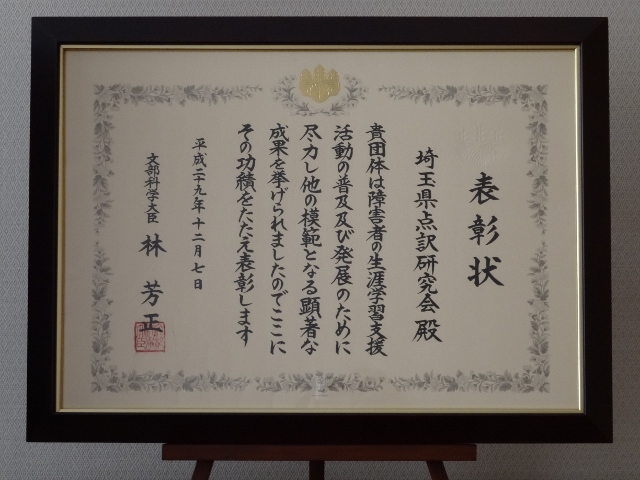 表彰状
埼玉県点訳研究会 殿
貴団体は障害者の生涯学習支援
活動の普及及び発展のために
尽力し他の模範となる顕著な
成果を挙げられましたのでここに
その功績をたたえ表彰します
平成二十九年十二月七日
文部科学大臣 林 芳正